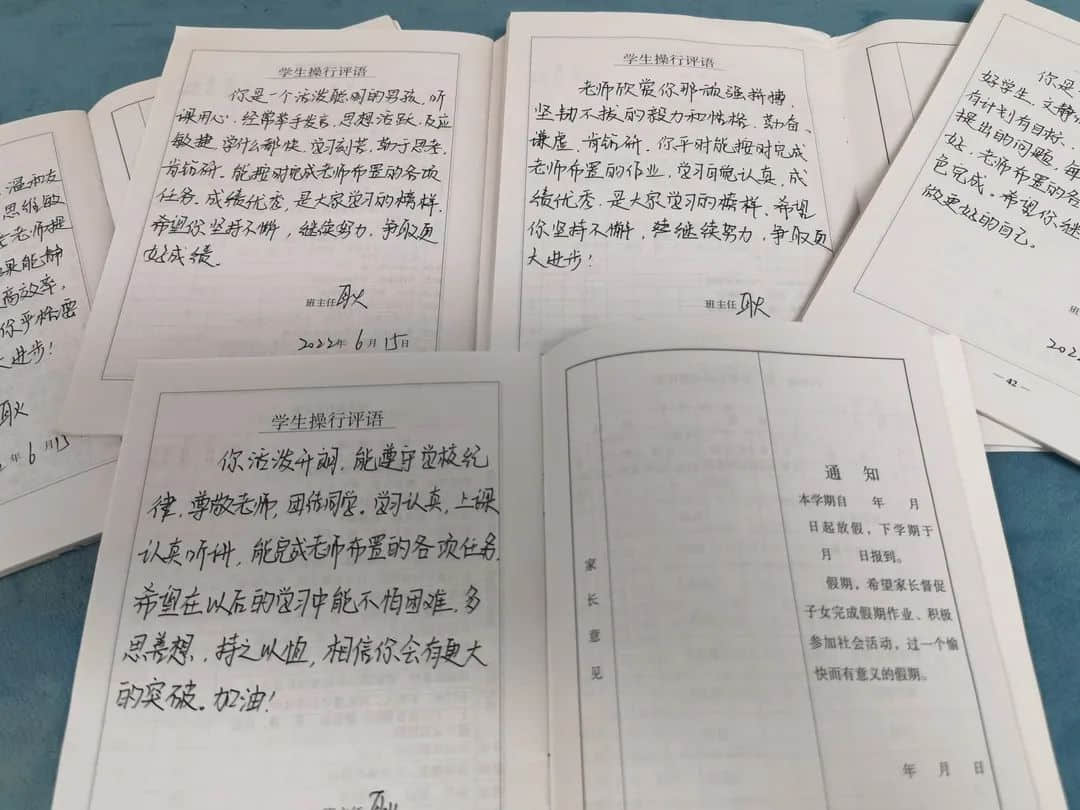 温和友
思维敏
老师提
果能静
高效率,
你严格要
大进步!
耿
年 6 月 15
学生操行评语
你是一个活泼聪明的男孩,听
课用心,经常举手发言,思想活跃,反应
敏捷,学什么都快,学习刻苦,勤于思考,
肯钻研,能按时完成老师布置的各项
任务,成绩优秀,是大家学习的榜样,
希望你坚持不懈,继续努力,争取更
好成绩。
班主任 耿
2022年 6 月 15日
学生操行评语
老师欣赏你那顽强拼搏,
坚韧不拔的毅力和性格,勤奋、
谦虚,肯钻研,你平时能按时完成
老师布置的作业,学习自觉认真,成
绩优秀,是大家学习的榜样,希望
你坚持不懈,继续努力,争取更
大进步!
班主任 耿
你是
好学生,文静
有计划有目标,
提出的问题,每
好,老师布置的各
色完成。希望你继
做更好的自己。
班
202
— 42 —
学生操行评语
你活泼开朗,能遵守学校纪
律,尊敬老师,团结同学。学习认真,上课
认真听讲,能完成老师布置的各项任务,
希望在以后的学习中能不怕困难,多
思善想,持之以恒,相信你会有更大
的突破。加油!
班主任 耿
家长意见
通知
本学期自 年 月
日起放假,下学期于
月 日报到。
假期,希望家长督促
子女完成假期作业、积极
参加社会活动,过一个愉
快而有意义的假期。
年 月 日